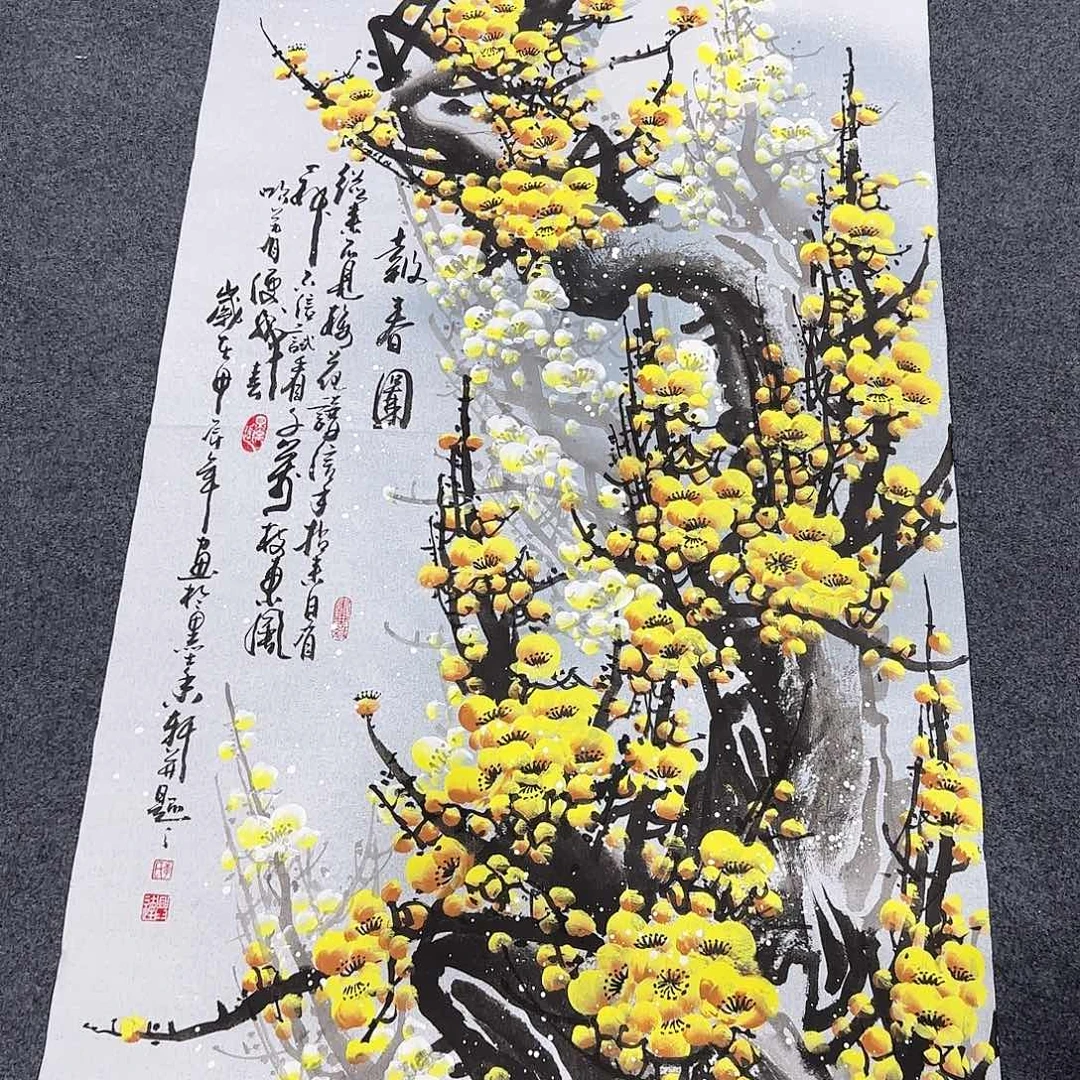 報春圖
從來不見梅花譜信手拈來自有
神不信試看千萬枝東風
吹著便成春
歲在甲辰年畫於黑土香軒並題